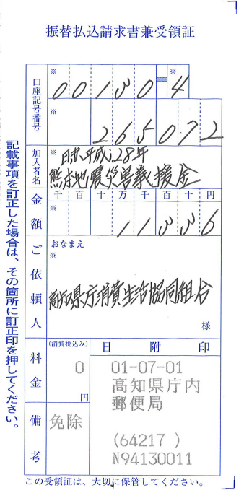 振替払込請求書兼受領証
口座記号番号
※
00130=4
※
265072
加入者名
※
日赤平成28年
熊本地震災害義援金
金額
千百十万千百十円
※
11336
ご依頼人
おなまえ
※
高知県庁消費生活協同組合
様
料金
(消費税込み)
0
円
備考
免除
日附印
01-07-01
高知県庁内
郵便局
(64217)
N94130011
記載事項を訂正した場合は、その箇所に訂正印を押してください。
この受領証は、大切に保管してください。